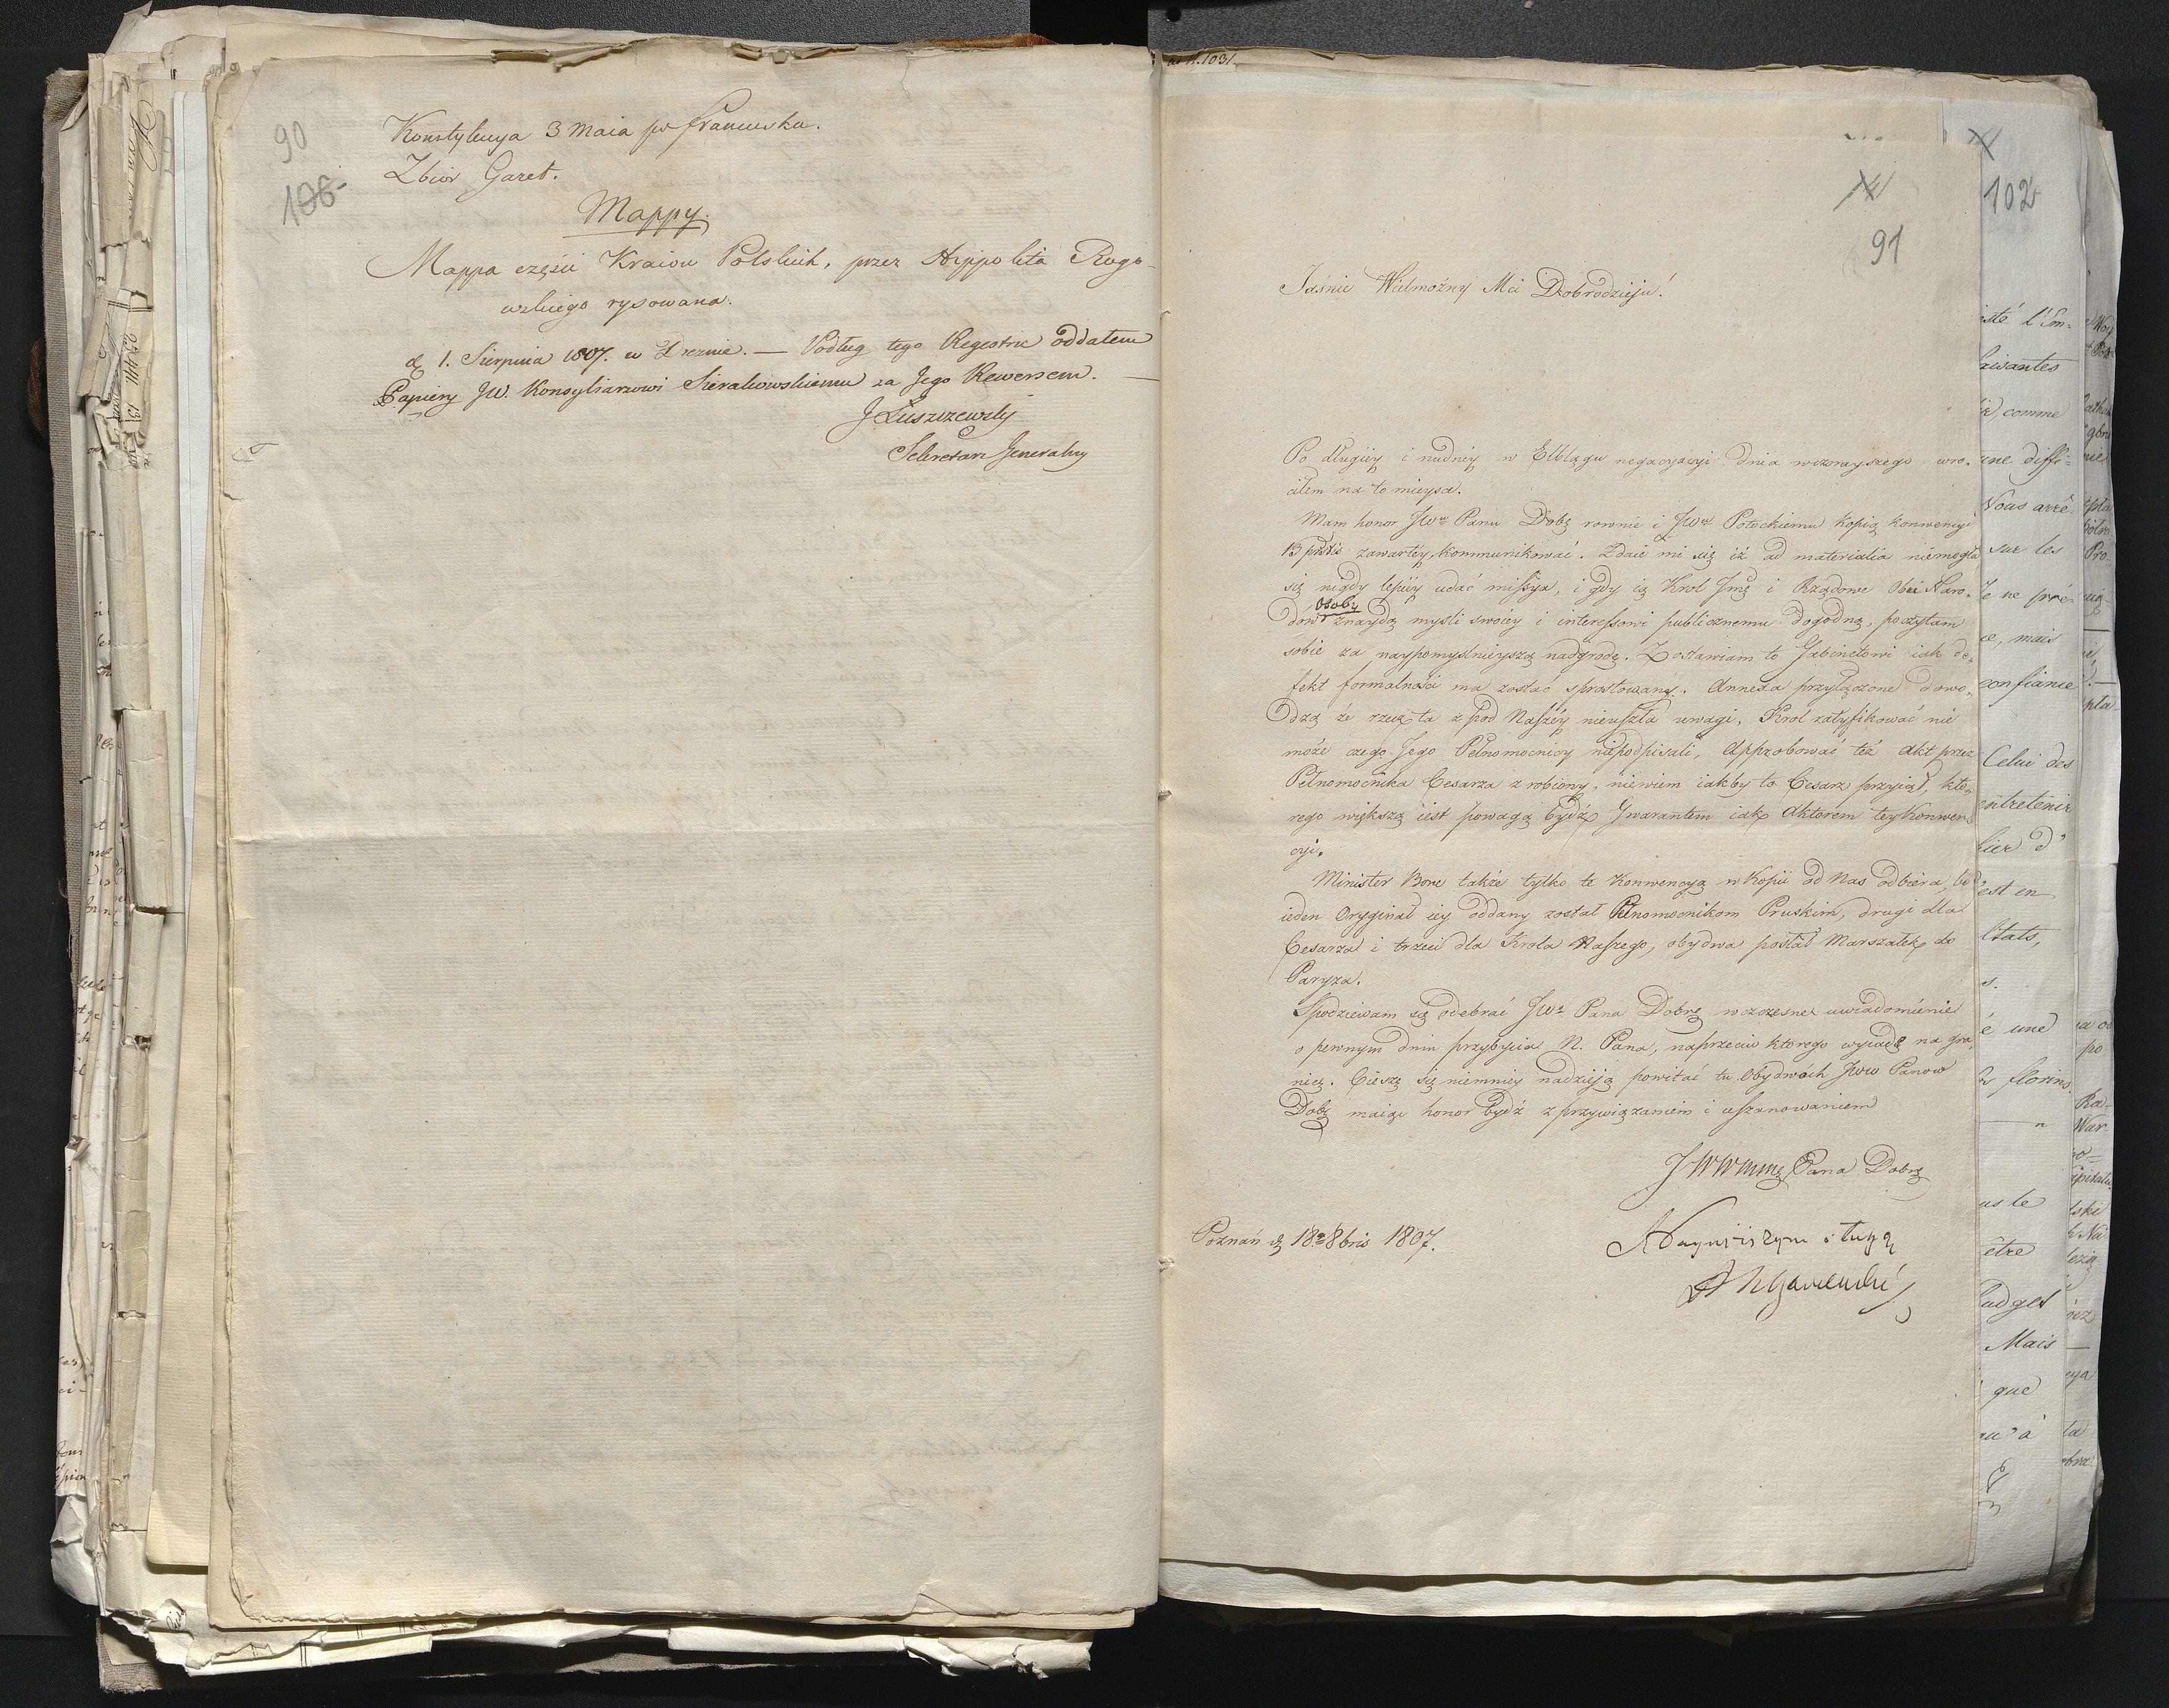 90
106
Konstytucya 3 Maia po francusku.
Zbiór Gazet.
Mappy.
Mappa części Kraiow Polskich, przez Hippolita Rogo-
wskiego rysowana.
d. 1. Sierpnia 1807. w Dreznie. — Podług tego Regestru oddałem
Papiery JW. Konsyliarzowi Sierakowskiemu za Jego Rewersem. —
J Łuszczewski
Sekretarz Generalny
91
Jaśnie Wielmożny Mci Dobrodzieju!
Po długiey i nudney w Elblągu negacyacyi dnia wczorayszego wro-
ciłem na to mieysce.
Mam honor JWu Panu Dobę rownie i JWu Potockiemu kopią konwencyi
13 praes zawartey kommunikować. Zdaie mi się iż ad materialia niemogła
się nigdy lepiey udać missya, i gdy ią Krol Jmę i Rządowe Obu Naro-
dów osoby znaydą mysli swoiey i interessowi publicznemu dogodną, poczytam
sobie za naypomyslnieyszą nadgrodę. Zostawiam to Gabinetowi iak de-
fekt formalności ma zostać sprostowany. Annexa przyłączone dowo-
dzą że rzecz ta z pod Naszey nieuszła uwagi. Krol ratyfikować nie
może czego Jego Pełnomocnicy niepodpisali, Approbować też Akt przez
Pełnomocnika Cesarza zrobiony, niewiem iakby to Cesarz przyiął, kto-
rego większą iest powagą bydź Gwarantem iak Aktorem tey Konwen-
cyi.
Minister Bore także tylko te Konwencyą w Kopii od Nas odbiera, bo
ieden Oryginał iey oddany został Pełnomocnikom Pruskim, drugi dla
Cesarza i trzeci dla Krola Naszego, obydwa posłał Marszałek do
Paryza.
Spodziewam się odebrać JWo Pana Dobrę wczesne uwiadomienie
o pewnym dniu przybycia N. Pana, naprzeciw ktorego wyiadę na gra-
nicę. Cieszę się niemniey nadzieją powitać tu Obydwóch JWW Panow
Dobę maiąc honor bydź z przywiązaniem i uszanowaniem
JWWmmę Pana Dobrę
Poznań d. 18 8bris 1807.
Nayniższym sługą
102